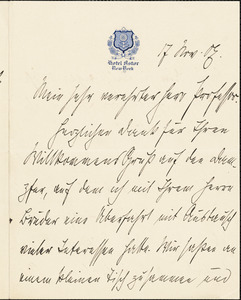 Hotel Astor
New-York
17 Nov. 07.
Mein sehr verehrter Herr Professor
Herzlichen Dank für Ihren
Willkommens Gruß auf den Dam-
pfer, auf dem ich mit Ihrem Herrn
Bruder eine Überfahrt mit Austausch
vieler Interessen hatte. Wir saßen an
einem kleinen Tisch zusammen und